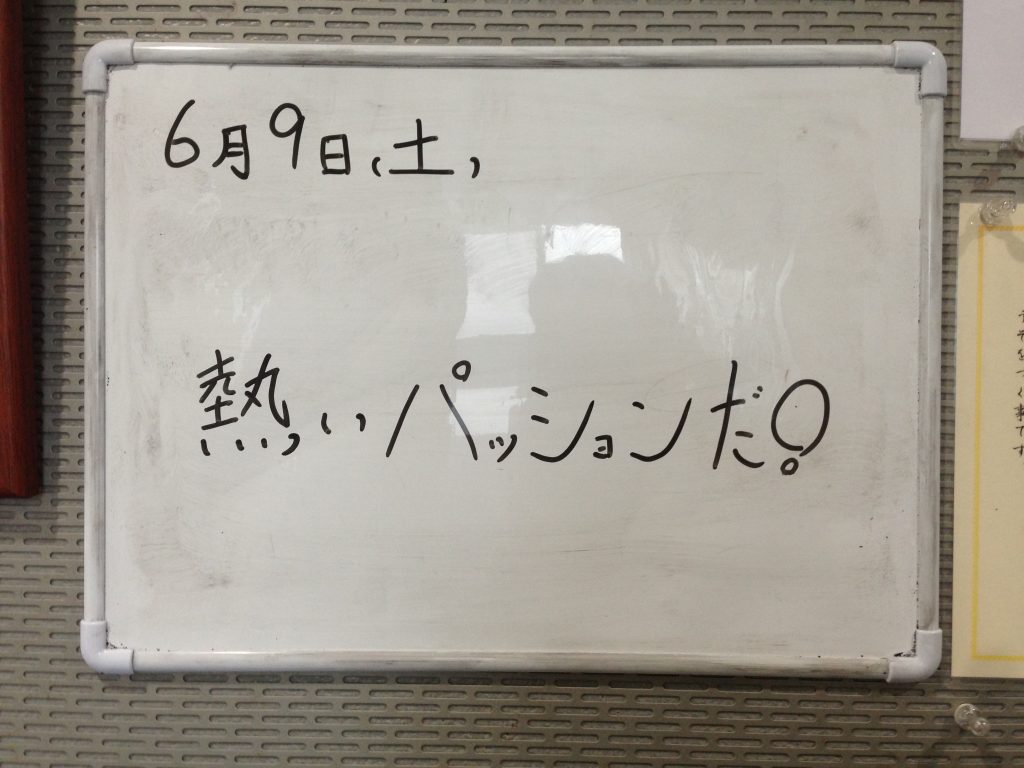 6月9日(土)
熱いパッションだ!